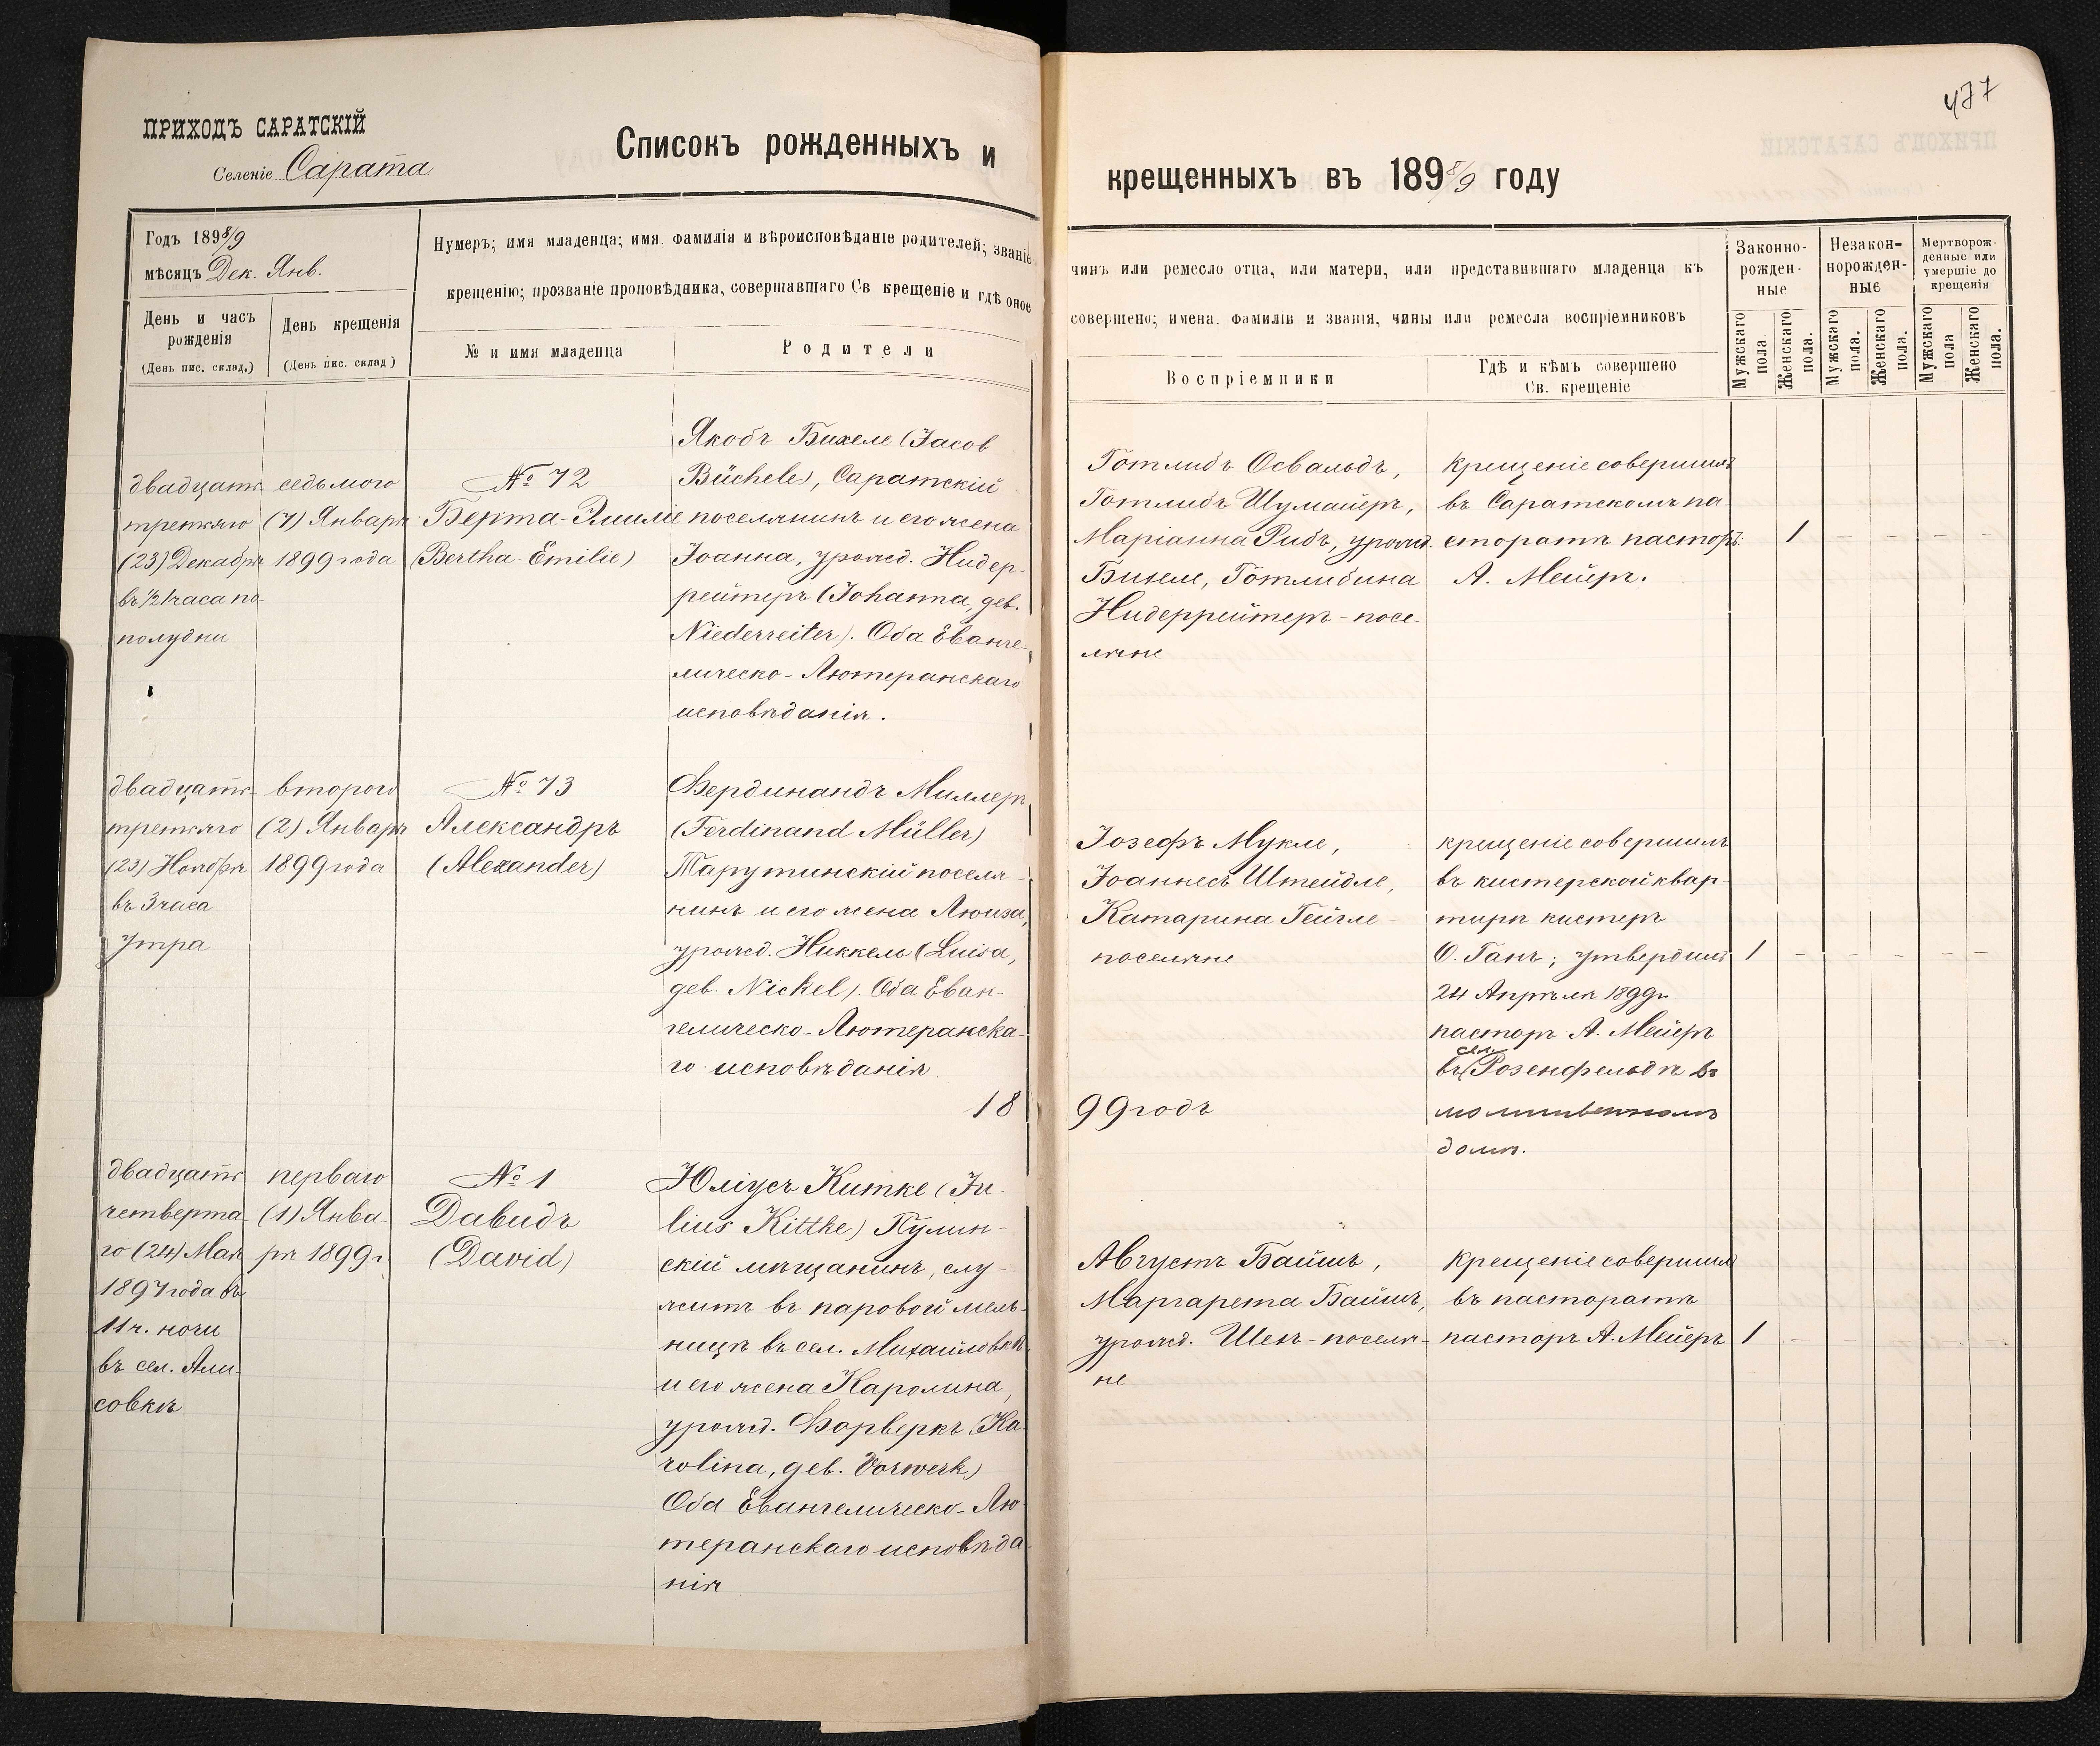 477
ПРИХОДЪ САРАТСКІЙ
Селеніе Сарата
Списокъ рожденныхъ и
крещенныхъ въ 1898/9 году
Годъ 1898/9
мѣсяцъ Дек. Янв.
День и часъ
рожденія
(День пис. склад.)
День крещенія
(День пис. склад)
Нумеръ; имя младенца; имя. фамилія и вѣроисповѣданіе родителей; званіе
крещенію; прозваніе проповѣдника, совершавшаго Св крещеніе и гдѣ оное
№ и имя младенца
Родители
чинъ или ремесло отца, или матери, или представившаго младенца къ
совершено; имена. фамиліи и званія, чины или ремесла воспріемниковъ
Воспріемники
Гдѣ и кѣмъ совершено
Св. крещеніе
Законно-
рожден-
ные
Незакон-
норожден-
ные
Мертворож-
денные или
умершіе до
крещенія
Мужскаго
пола
Женскаго
пола.
Мужскаго
пола.
Женскаго
пола.
Мужскаго
пола
Женскаго
пола.
двадцать
третьяго
(23) Декабря
въ 1/2 1 часа по-
полудни
седьмого
(7) Января
1899 года
№ 72
Берта-Эмиліе
(Bertha Emilie)
Якобъ Бихеле (Jacob
Büchele), Саратскій
поселянинъ и его жена
Іоанна, урожд. Нидер-
рейтеръ (Johanna, geb.
Niederreiter). Оба Еванге-
лическо-Лютеранскаго
исповѣданія.
Готлибъ Освальдъ,
Готлибъ Шумайеръ,
Маріанна Рибъ, урожд.
Бихеле, Готлибина
Нидеррейтеръ - посе-
ляне
крещеніе совершилъ
въ Саратскомъ па-
сторатѣ пасторъ
А. Мейеръ.
1 - - - -
двадцать
третьяго
(23) Ноября
въ 3 часа
утра
второго
(2) Января
1899 года
№ 73
Александръ
(Alexander)
Фердинандъ Миллеръ
(Ferdinand Müller)
Тарутинскій поселя-
нинъ и его жена Люиза,
урожд. Никкель (Luisa,
geb. Nickel). Оба Еван-
гелическо-Лютеранска-
го исповѣданія
Іозефъ Мукле,
Іоаннесъ Штейдле,
Катарина Гейгле -
поселяне
крещеніе совершилъ
въ кистерской квар-
тирѣ кистеръ
О. Ганъ; утвердилъ
24 Апрѣля 1899 г.
пасторъ А. Мейеръ
въ сел. Розенфельдѣ въ
молитвенномъ
домѣ.
1 - - - - -
1899 годъ
двадцать
четверта
го (24) Мая
1897 года въ
11 ч. ночи
въ сел. Али-
совкѣ
перваго
(1) Янва-
ря 1899 г.
№ 1
Давидъ
(David)
Юліусъ Китке (Ju-
lius Kittke) Пулин-
скій мѣщанинъ, слу-
житъ въ паровой мель-
ницѣ въ сел. Михайловкѣ
и его жена Каролина,
урожд. Форверкъ (Ka-
rolina, geb. Vorwerk)
Оба Евангелическо-Лю-
теранскаго исповѣда-
нія
Августъ Байшъ,
Маргарета Байшъ,
урожд. Шекъ - поселя-
не
крещеніе совершилъ
въ пасторатѣ
пасторъ А. Мейеръ
1 -